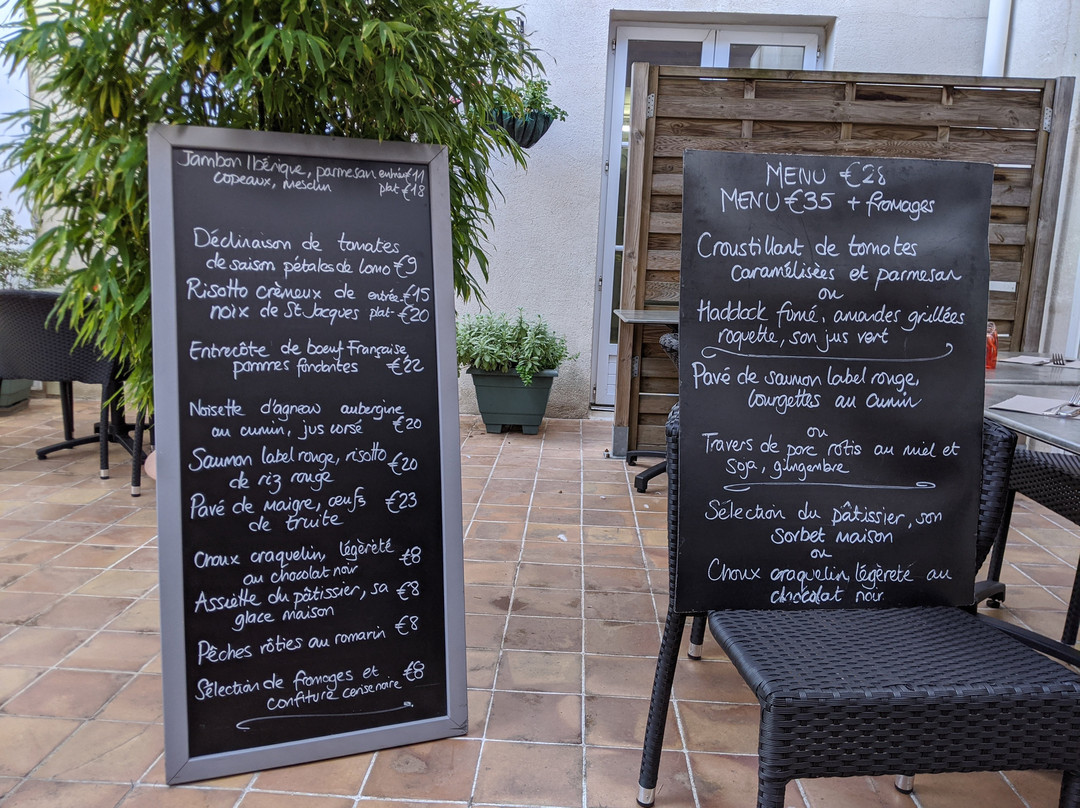 Jambon Ibérique, parmesan entrée €11
copeaux, mesclun plat €18
Déclinaison de tomates
de saison pétales de lomo €9
Risotto crèmeux de entrée €15
noix de St Jacques plat €20
Entrecôte de boeuf Française
pommes fondantes €22
Noisette d'agneau aubergine
au cumin, jus corsé €20
Saumon label rouge, risotto €20
de riz rouge
Pavé de maigre, œufs €23
de truite
Choux craquelin, légèreté €8
au chocolat noir
Assiette du pâtissier, sa €8
glace maison
Pêches rôties au romarin €8
Sélection de fromages et €8
confiture cerise noire
MENU €28
MENU €35 + fromages
Croustillant de tomates
caramélisées et parmesan
ou
Haddock fumé, amandes grillées
roquette, son jus vert
Pavé de saumon label rouge,
courgettes au cumin
ou
Travers de porc rôtis au miel et
soja, gingembre
Sélection du pâtissier, son
sorbet maison
ou
Choux craquelin, légèreté au
chocolat noir